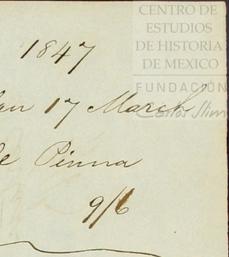 CENTRO DE
ESTUDIOS
DE HISTORIA
DE MEXICO
FUNDACIÓN
Carlos Slim
1847
17 March
de Pinna
9/6